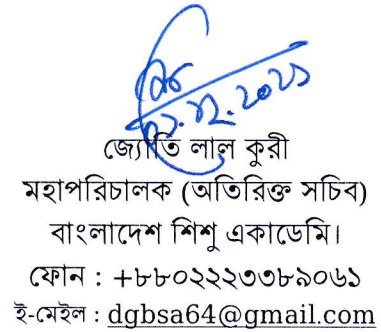 জ্যোতি লাল কুরী
মহাপরিচালক (অতিরিক্ত সচিব)
বাংলাদেশ শিশু একাডেমি।
ফোন : +৮৮০২২২৩৩৮৯০৬১
ই-মেইল : dgbsa64@gmail.com